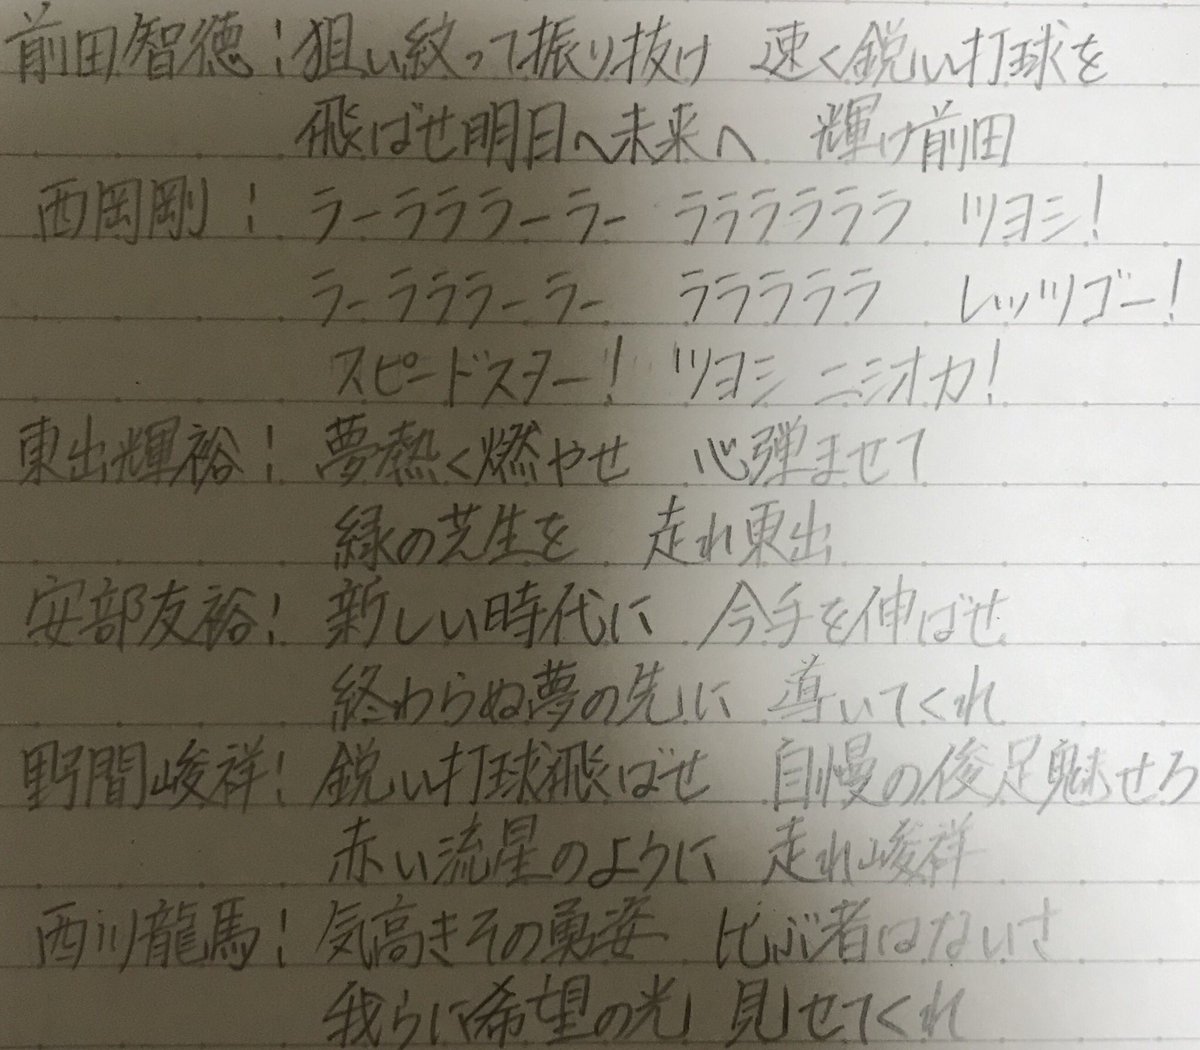 前田智徳！狙い絞って振り抜け 速く鋭い打球を
飛ばせ明日へ未来へ 輝け前田
西岡剛！ラーラララーラー ララララララ ツヨシ！
ラーラララーラー ラララララ レッツゴー！
スピードスター！ ツヨシ ニシオカ！
東出輝裕！夢熱く燃やせ 心弾ませて
緑の芝生を 走れ東出
安部友裕！新しい時代に 今手を伸ばせ
終わらぬ夢の先に 導いてくれ
野間峻祥！鋭い打球飛ばせ 自慢の俊足魅せろ
赤い流星のように 走れ峻祥
西川龍馬！気高きその勇姿 比ぶ者はないさ
我らに希望の光 見せてくれ